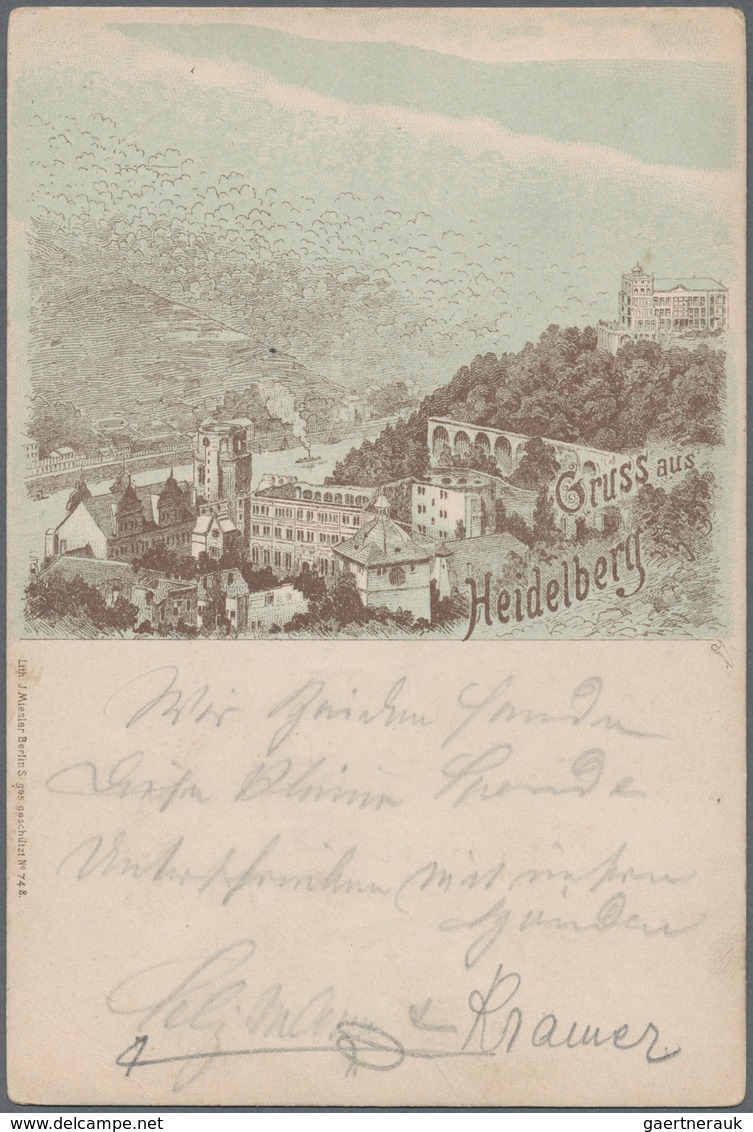 Gruss aus
Heidelberg
Lith. J. Miesler Berlin S. ges. geschützt No 748.
Wir beiden senden
Diese kleine Spende
Unterschreiben mit unsern
Händen
&
Kramer
© www.delcampe.net
gaertnerauk